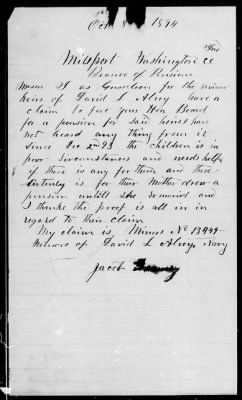 Oct 8 1894
Millport Washington co
Bureau of Pension
I as Guardian for the minor
heirs of David L Alvey have a
claim before your Hon Board
for a pension for said heirs & have
not heard any thing from it
since Dec 2nd 93 the children is in
poor Sircumstances and needs help
if there is any for them and there
sirtenly is for their Mother drew a
pension untill she remarid and
I thinke the proof is all in in
regard to their claim
My claim is Minors No 13949
Minors of David L Alvey Navy
Jacob